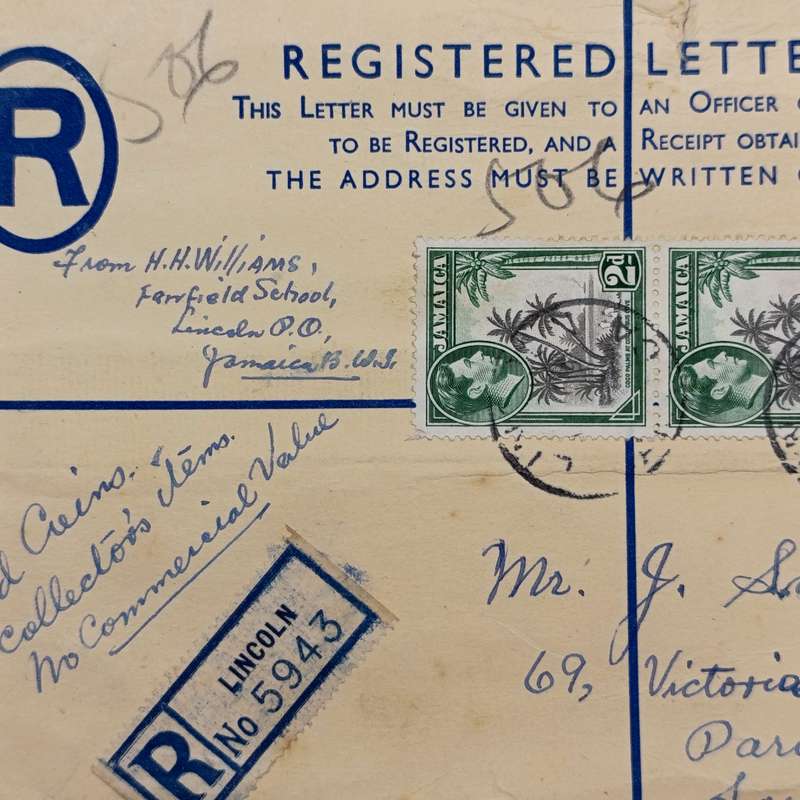 506
REGISTERED LETTE
THIS LETTER MUST BE GIVEN TO AN OFFICER
TO BE REGISTERED, AND A RECEIPT OBTAI
THE ADDRESS MUST BE WRITTEN
R
506
From H.H. Williams,
Fairfield School,
Lincoln P.O.,
Jamaica B.W.I.
JAMAICA
2d
COCO PALMS AT COLUMBUS COVE
JAMAICA
Coins. &
collector's items.
No Commercial Value
LINCOLN
R No 5943
Mr. J.
69, Victoria